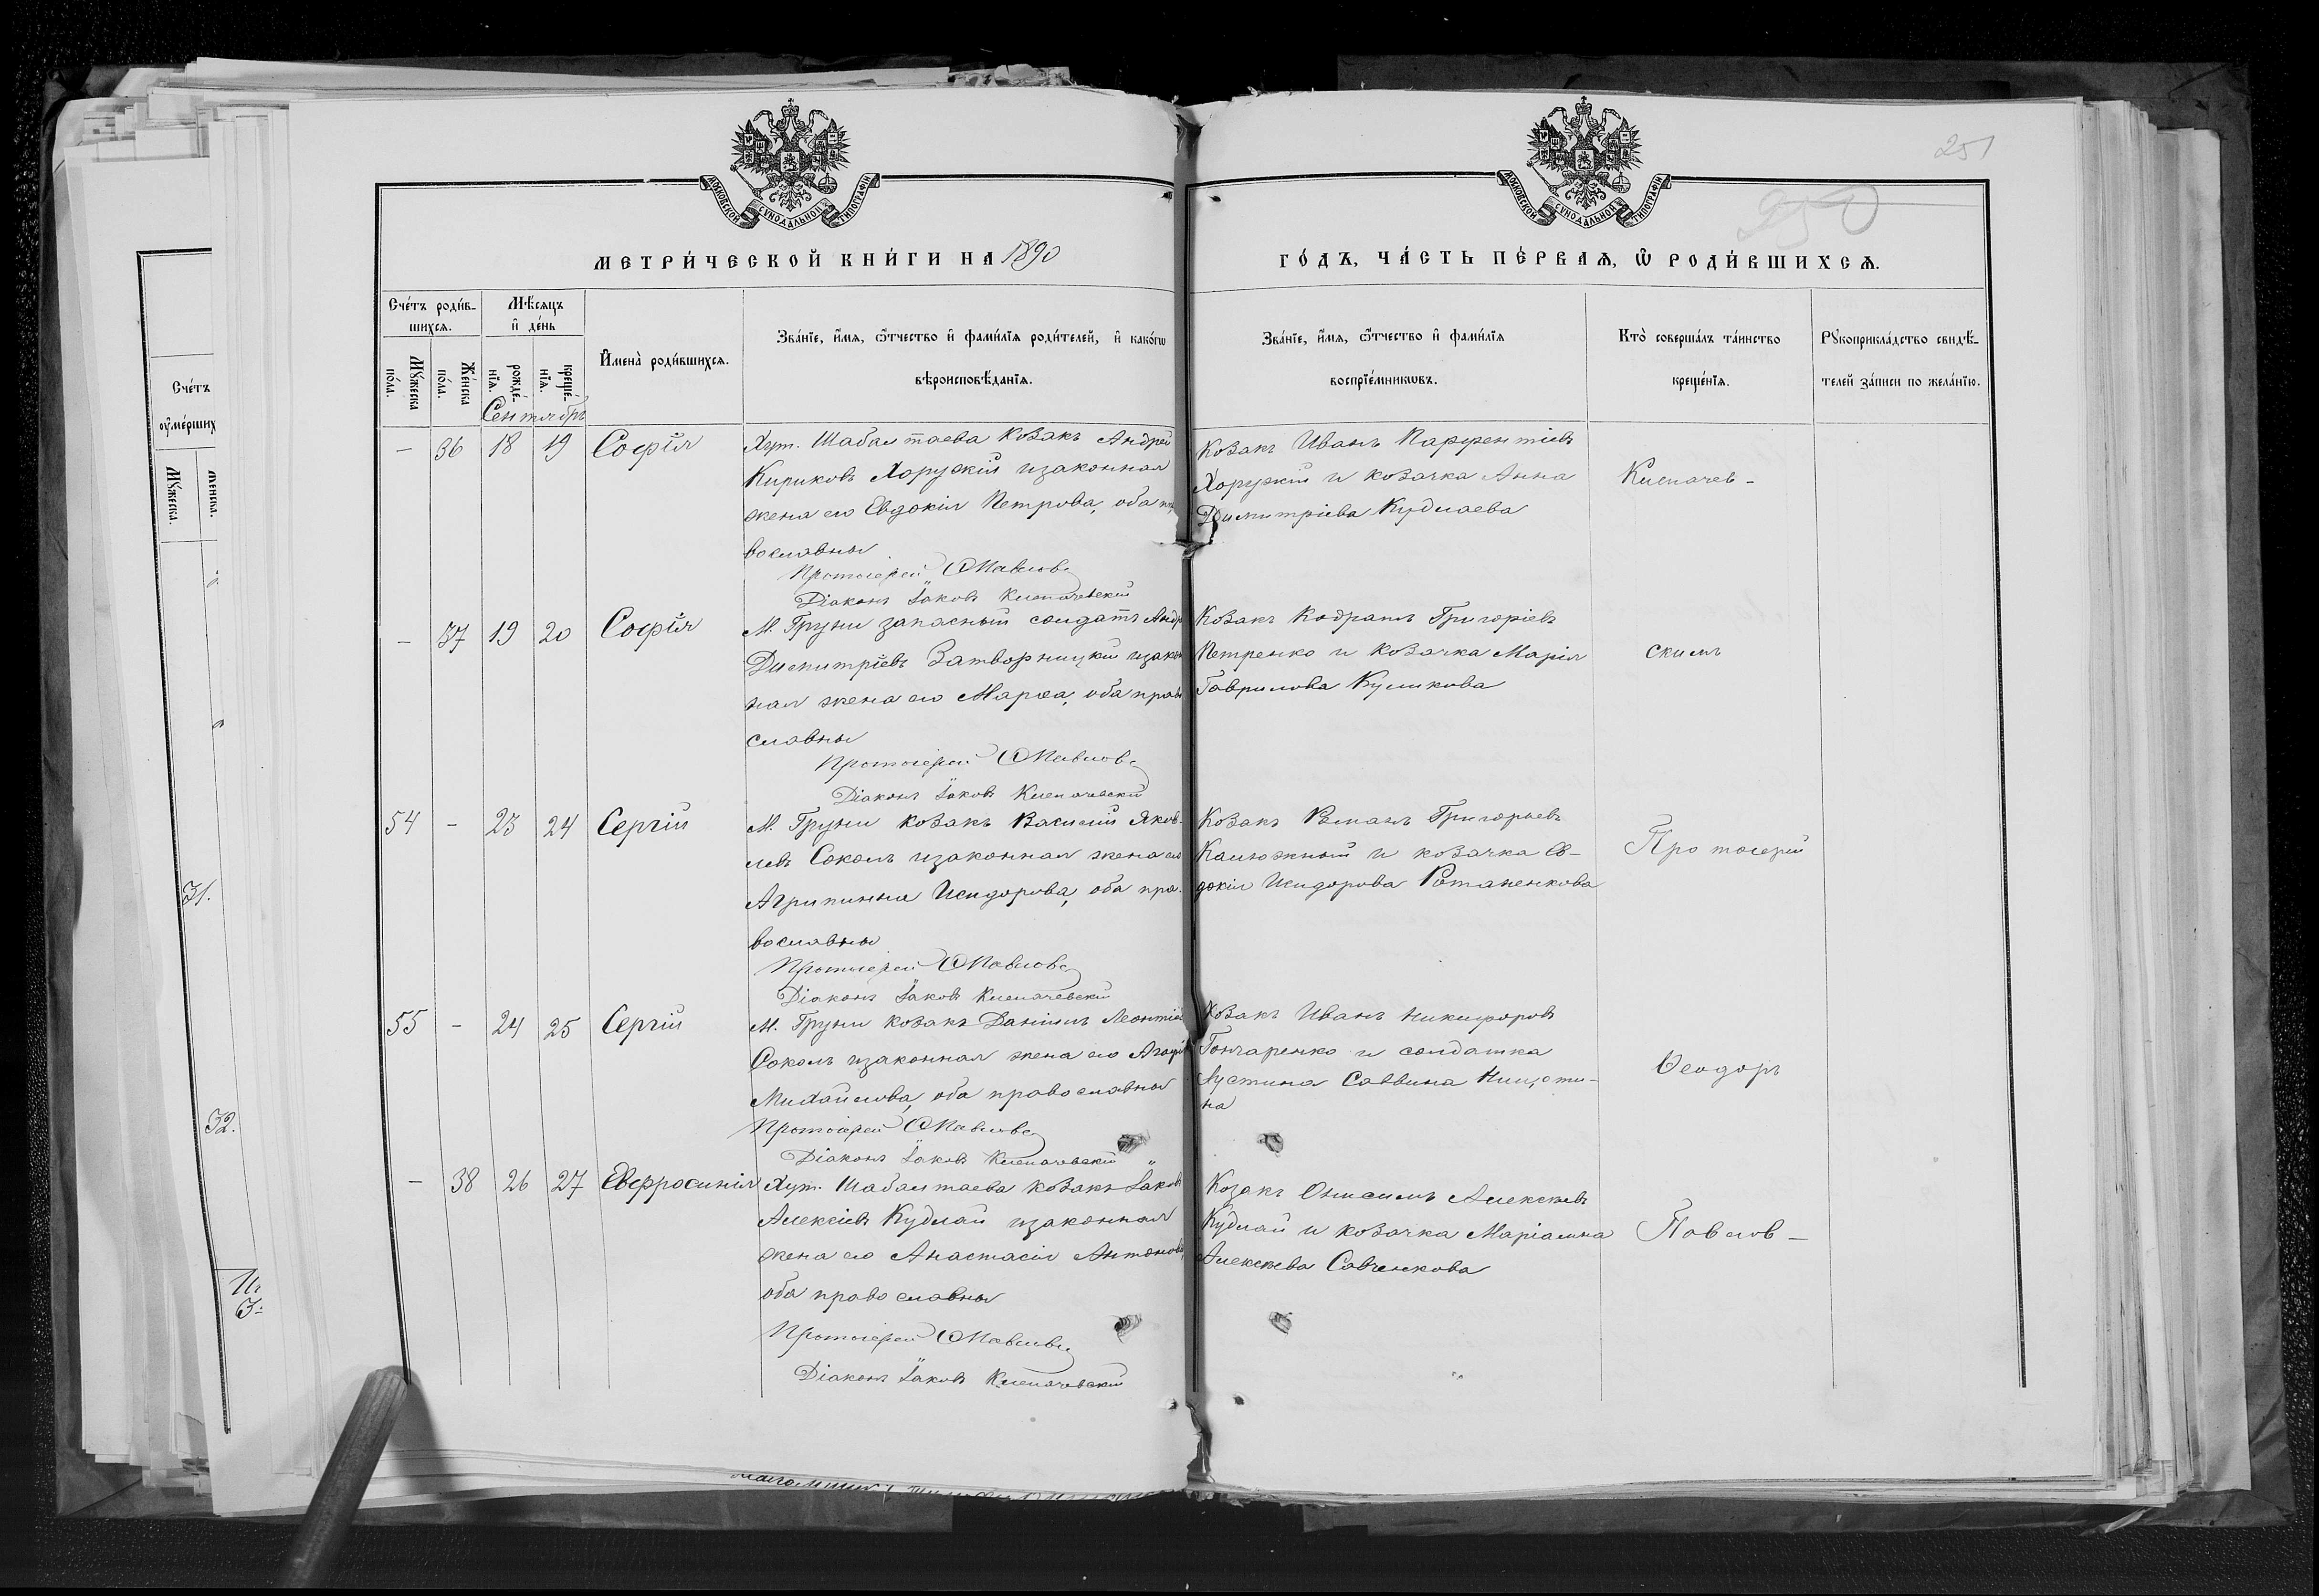 251
250
МОСКОВСКОЙ СѴНОДАЛЬНОЙ ТИПОГРАФІИ
МОСКОВСКОЙ СѴНОДАЛЬНОЙ ТИПОГРАФІИ
МЕТРИ́ЧЕСКОЙ КНИ́ГИ НА 1890
ГО́ДЪ, ЧА́СТЬ ПЕ́РВАѦ, Ѡ҆ РОДИ́ВШИХСѦ.
Сче́тъ роди́в-
шихсѧ.
Мꙋ́жеска
по́ла.
Же́нска
по́ла.
Мѣ́сѧцъ
и҆ де́нь
рожде́-
нїѧ.
креще́-
нїѧ.
Сентябрь
И҆мена̀ роди́вшихсѧ.
Зва́нїе, и҆́мѧ, ѻ҆́тчество и҆ фами́лїѧ роди́телей, и҆ како́гѡ
вѣроисповѣ́данїѧ.
Зва́нїе, и҆́мѧ, ѻ҆́тчество и҆ фами́лїѧ
воспрїе́мникѡвъ.
Кто̀ соверша́лъ та́инство
креще́нїѧ.
Рꙋкоприкла́дство свидѣ́-
телей за́писи по жела́нїю.
— 36 18 19 Софія
Хут. Шабалтаева козакъ Андрей
Кириковъ Хоружій и законная
жена его Евдокія Петрова, оба пра
вославны
Протоіерей Ѳ Павловъ
Діаконъ Іаковъ Клепачевскій
Козакъ Иванъ Парфентіевъ
Хоружій и козачка Анна
Димитріева Кудлаева
Клепачев-
— 37 19 20 Софія
М. Груни запасный солдатъ Андр
Димитріевъ Затворницкій и закон
ная жена его Марѳа, оба право
славны
Протоіерей Ѳ Павловъ
Діаконъ Іаковъ Клепачевскій
Козакъ Кодратъ Григоріевъ
Петренко и козачка Марія
Гаврилова Куликова
скимъ
54 — 23 24 Сергій
М. Груни козакъ Василій Яков-
левъ Соколъ и законная жена его
Агрипинна Исидорова, оба пра-
вославны
Протоіерей Ѳ Павловъ
Діаконъ Іаковъ Клепачевскій
Козакъ Романъ Григорьевъ
Калюжный и козачка Ев-
докія Исидорова Ротаненкова
Протоіерей
55 — 24 25 Сергій
М. Груни козакъ Даніилъ Леонтіев
Соколъ и законная жена его Агафія
Михайлова, оба православны
Протоіерей Ѳ Павловъ
Діаконъ Іаковъ Клепачевскій
Козакъ Иванъ Никифоровъ
Гончаренко и солдатка
Іустина Саввина Нищоти-
на
Ѳеодоръ
— 38 26 27 Евфросинія
Хут. Шабалтаева козакъ Іаковъ
Алексіевъ Кудлай и законная
жена его Анастасія Антонова
оба православны
Протоіерей Ѳ Павловъ
Діаконъ Іаковъ Клепачевскій
Козакъ Онисимъ Алексѣевъ
Кудлай и козачка Маріамна
Алексѣева Савченкова
Павлов-
Сче́тъ
ᲂу҆ме́рших
Мꙋ́жеска.
Же́нска.
31.
32.